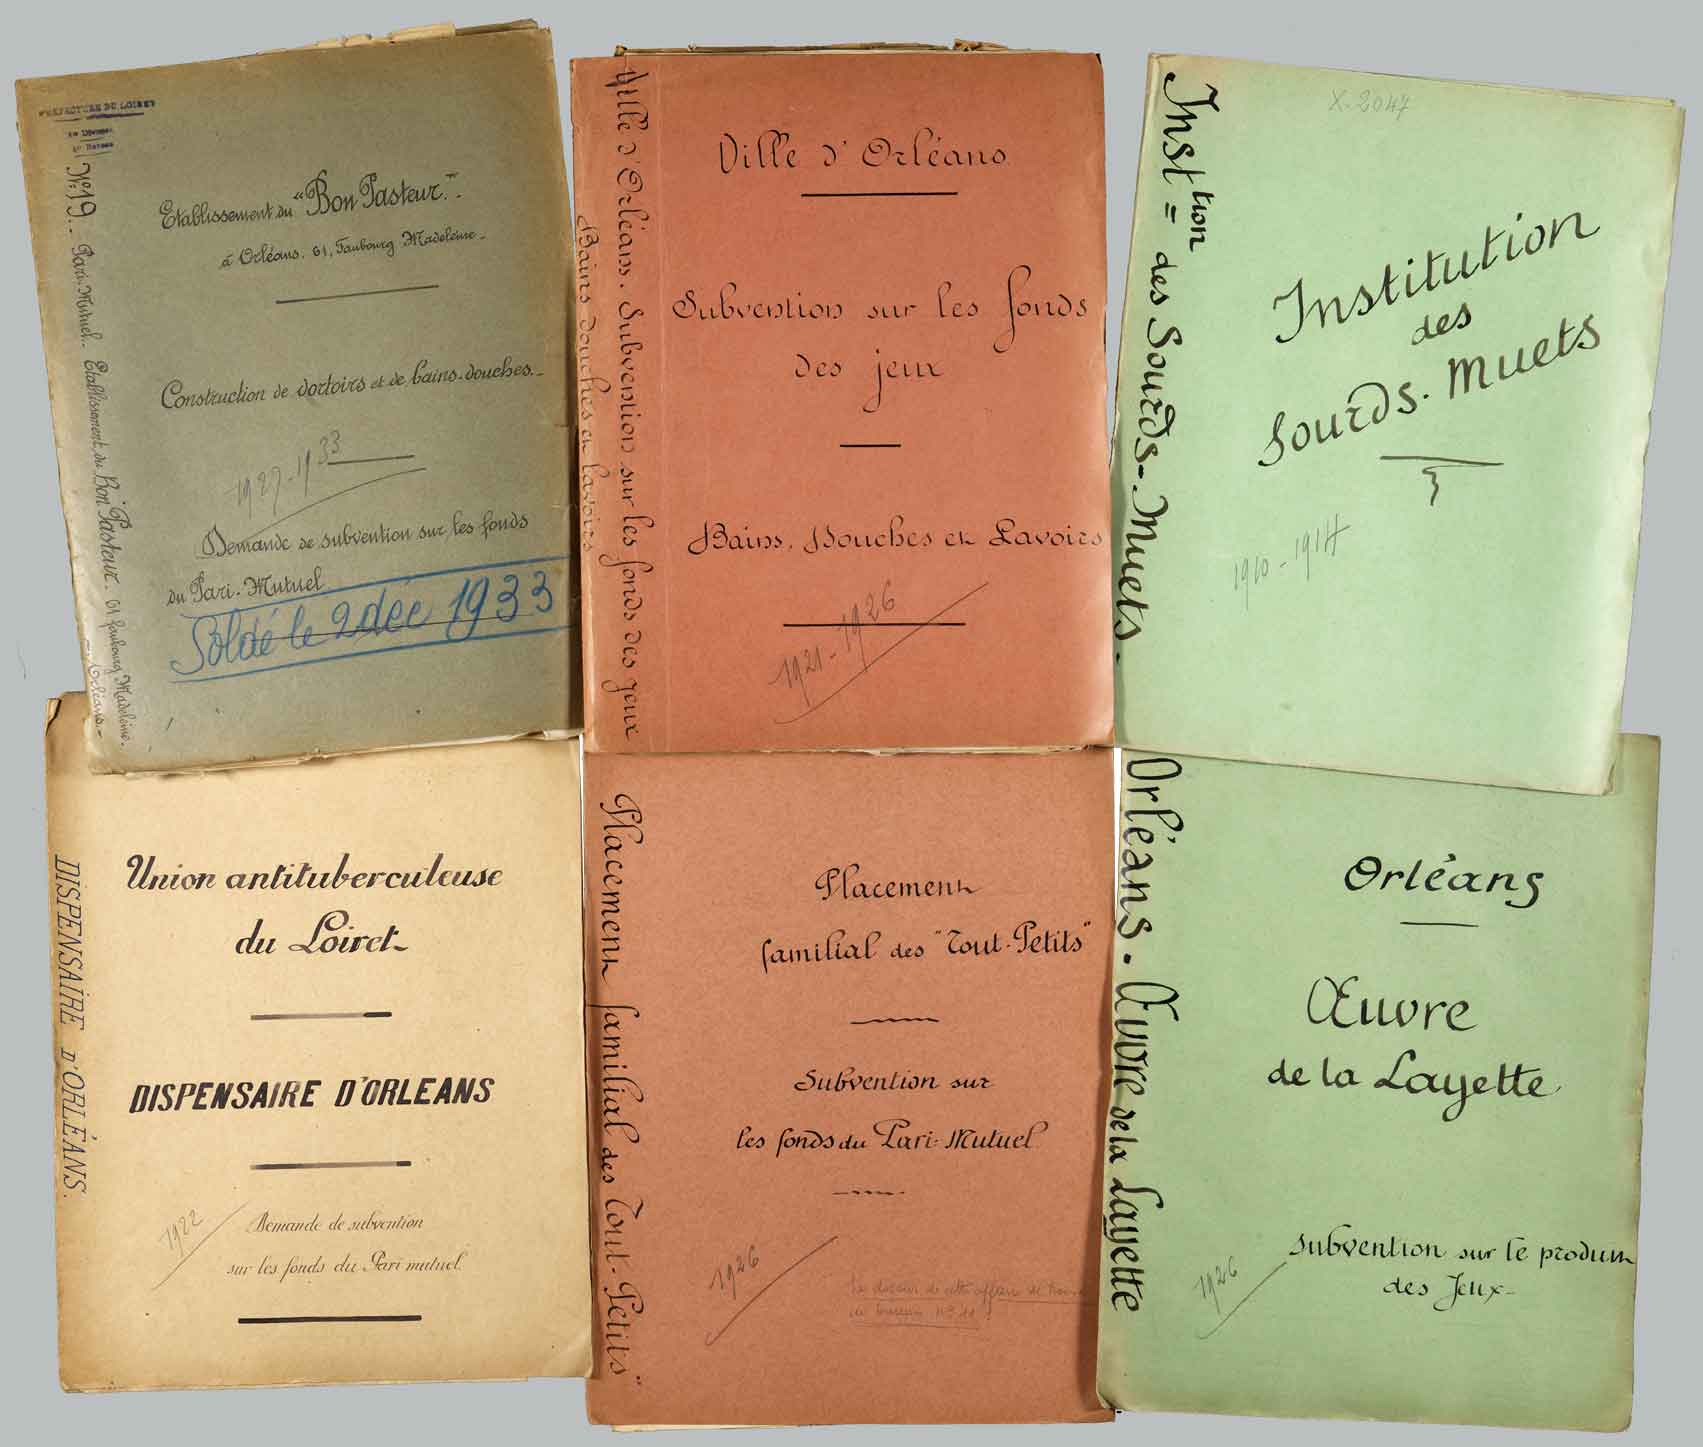 PREFECTURE DU LOIRET
Nº 19. Pari-Mutuel. Etablissement du Bon Pasteur. 61 faubourg Madeleine.
Orléans.-
Etablissement du "Bon Pasteur".-
à Orléans. 61, Faubourg Madeleine-
Construction de dortoirs et de bains-douches.-
1927-1933
Demande de subvention sur les fonds
du Pari-Mutuel
Soldé le 2 déc 1933
Ville d'Orléans. Subvention sur les fonds des jeux
Bains douches et lavoirs
Ville d'Orléans
Subvention sur les fonds
des jeux
Bains, Douches et Lavoirs
1921-1926
Inst^tion = des Sourds-Muets.
X.2047
Institution
des
Sourds-Muets
1910-1914
DISPENSAIRE D'ORLÉANS.
Union antituberculeuse
du Loiret
DISPENSAIRE D'ORLEANS
1922
Demande de subvention
sur les fonds du Pari mutuel.
Placement familial des Tout-Petits"
Placement
familial des "Tout-Petits"
Subvention sur
les fonds du Pari-Mutuel
1926
Le dossier de cette affaire se trouve
Orléans. Œuvre de la Layette
Orléans
Œuvre
de la Layette
1926
Subvention sur le produit
des Jeux-